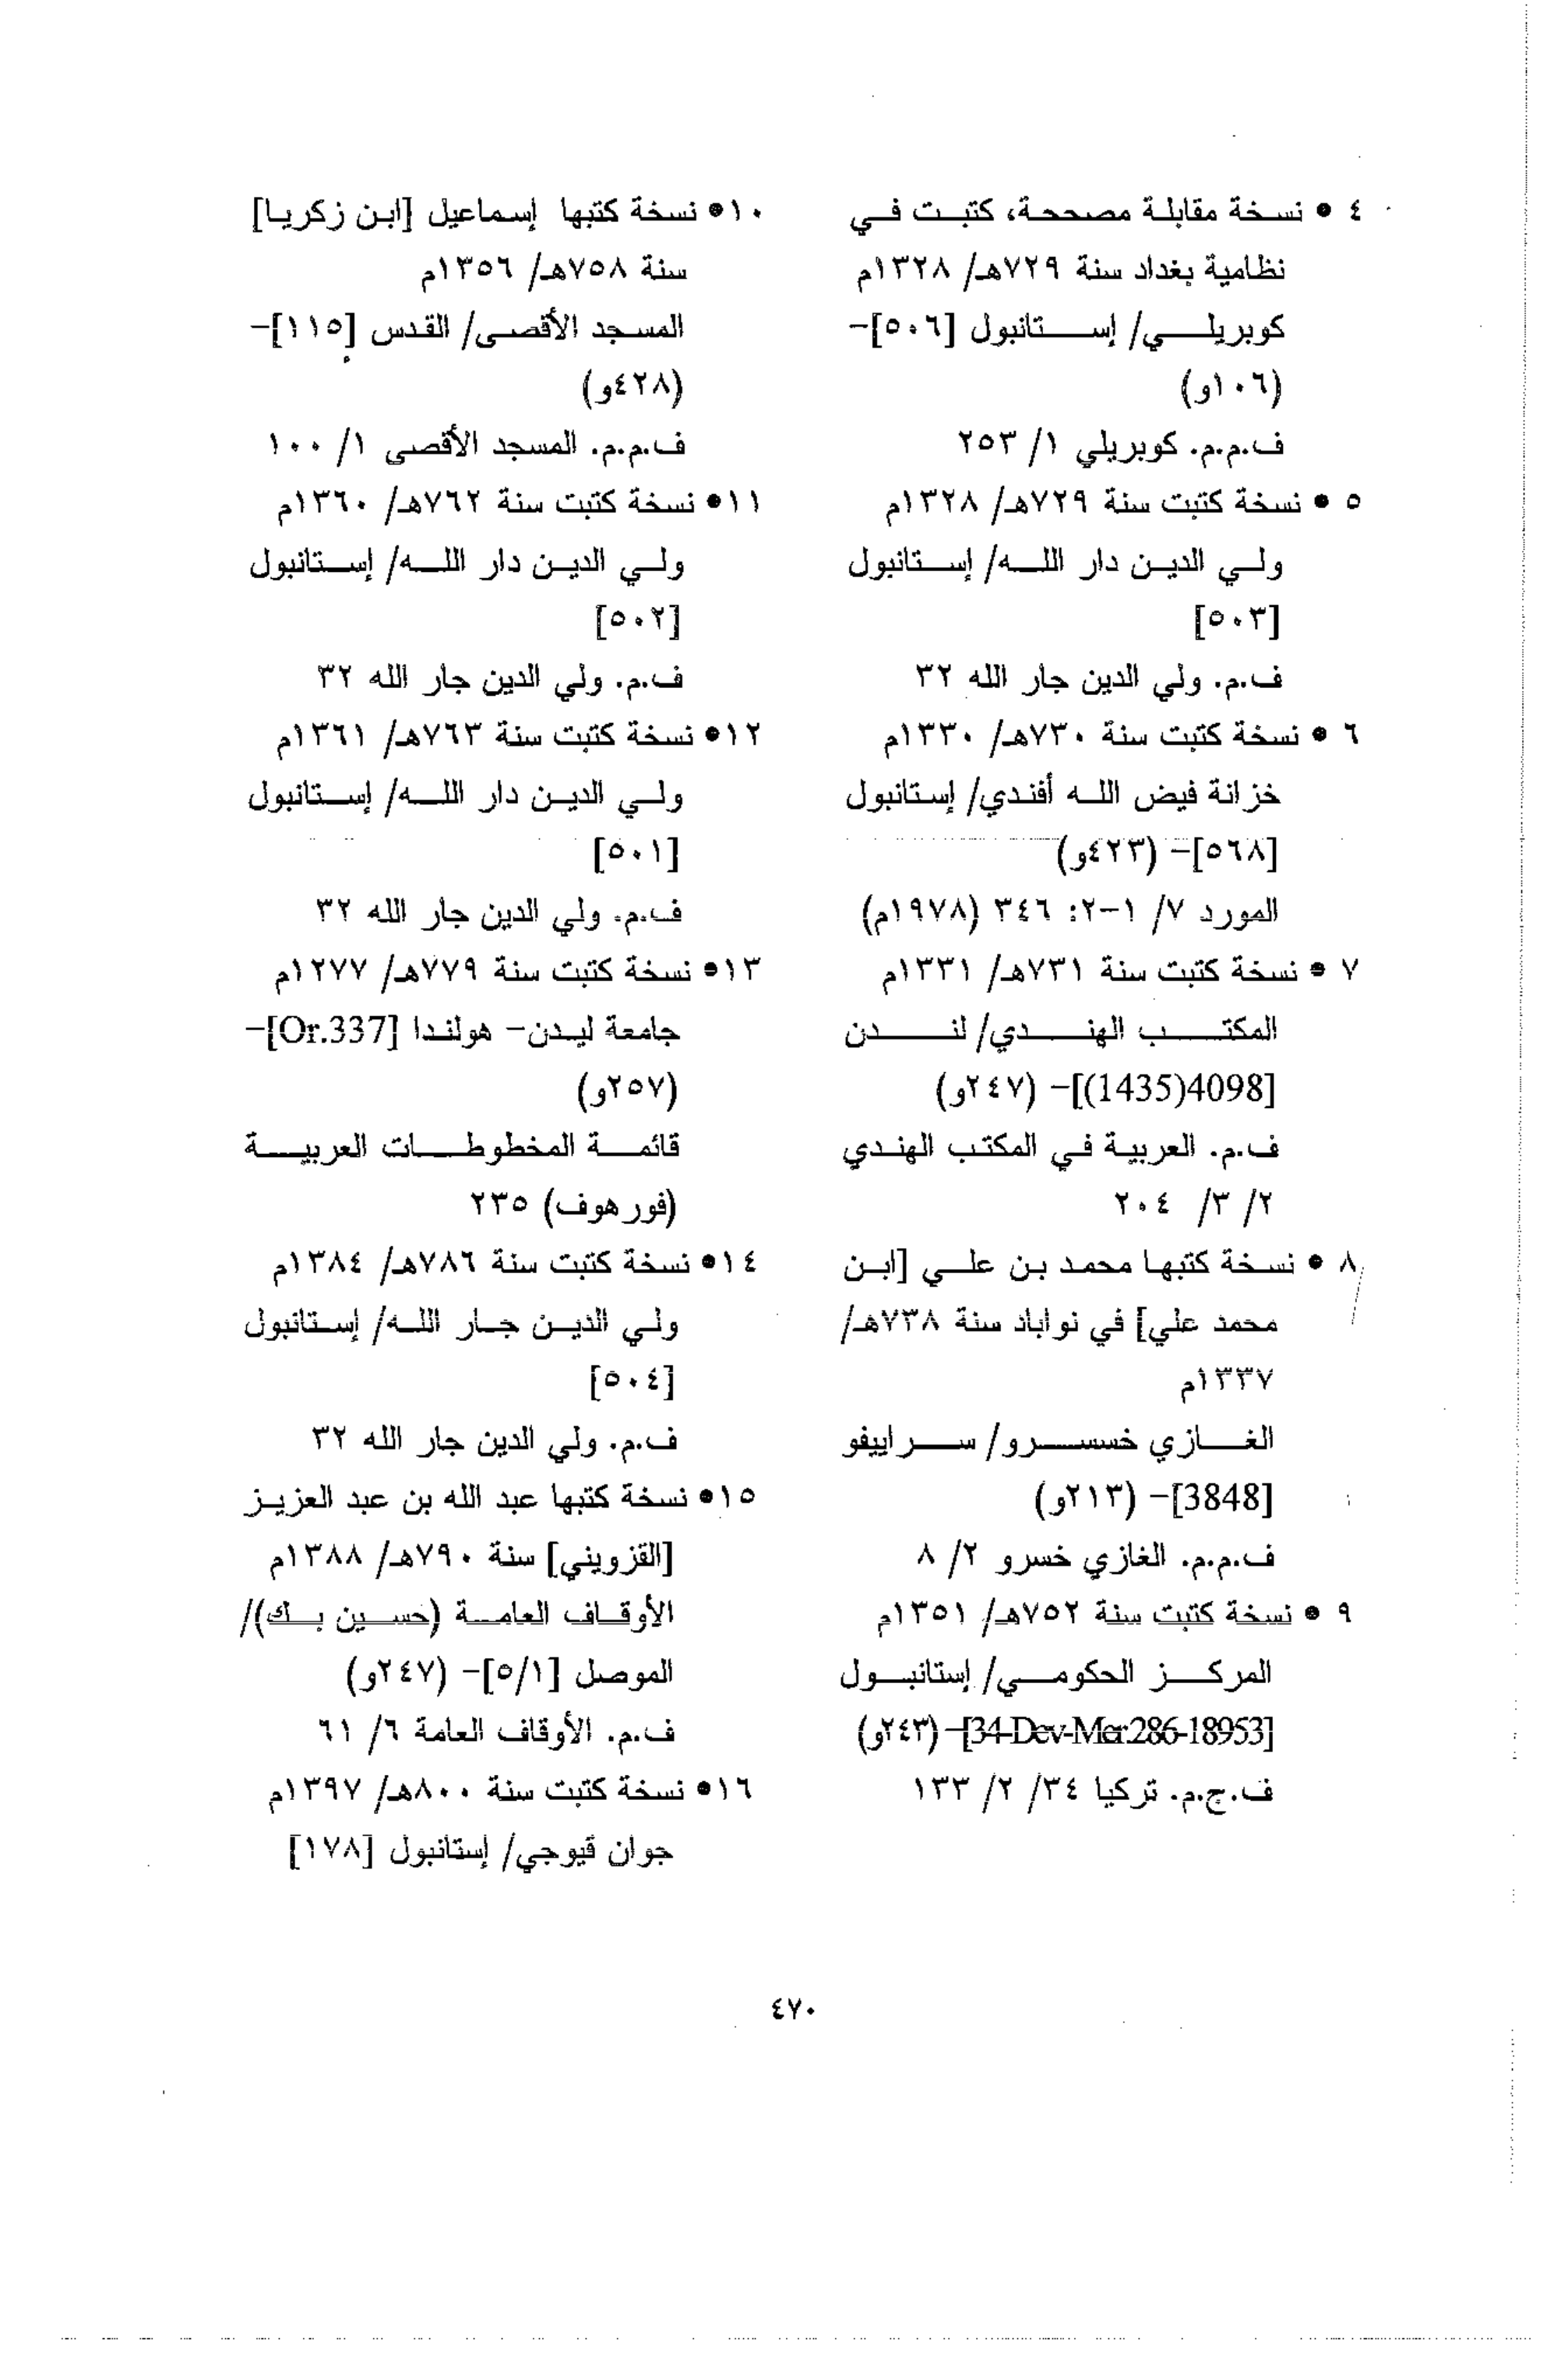 ٤ • نسخة مقابلة مصححة، كتبت في
نظامية بغداد سنة ٧٢٩هـ/ ١٣٢٨م
كوبريلي/ إستانبول [٥٠٦]-
(١٠٦و)
ف.م.م. كوبريلي ١/ ٢٥٣
٥ • نسخة كتبت سنة ٧٢٩هـ/ ١٣٢٨م
ولي الدين دار الله/ إستانبول
[٥٠٣]
ف.م. ولي الدين جار الله ٣٢
٦ • نسخة كتبت سنة ٧٣٠هـ/ ١٣٣٠م
خزانة فيض الله أفندي/ إستانبول
[٥٦٨]- (٤٢٣و)
المورد ٧/ ١-٢: ٣٤٦ (١٩٧٨م)
٧ • نسخة كتبت سنة ٧٣١هـ/ ١٣٣١م
المكتب الهندي/ لندن
[4098(1435)]- (٢٤٧و)
ف.م. العربية في المكتب الهندي
٢/ ٣/ ٢٠٤
٨ • نسخة كتبها محمد بن علي [ابن
محمد علي] في نواباد سنة ٧٣٨هـ/
١٣٣٧م
الغازي خسسرو/ سراييفو
[3848]- (٢١٣و)
ف.م.م. الغازي خسرو ٢/ ٨
٩ • نسخة كتبت سنة ٧٥٢هـ/ ١٣٥١م
المركز الحكومي/ إستانبول
[34-Dev-Mer.286-18953]- (٢٤٣و)
ف.ج.م. تركيا ٣٤/ ٢/ ١٣٣
١٠• نسخة كتبها إسماعيل [ابن زكريا]
سنة ٧٥٨هـ/ ١٣٥٦م
المسجد الأقصى/ القدس [١١٥]-
(٤٢٨و)
ف.م.م. المسجد الأقصى ١/ ١٠٠
١١• نسخة كتبت سنة ٧٦٢هـ/ ١٣٦٠م
ولي الدين دار الله/ إستانبول
[٥٠٢]
ف.م. ولي الدين جار الله ٣٢
١٢• نسخة كتبت سنة ٧٦٣هـ/ ١٣٦١م
ولي الدين دار الله/ إستانبول
[٥٠١]
ف.م. ولي الدين جار الله ٣٢
١٣• نسخة كتبت سنة ٧٧٩هـ/ ١٢٧٧م
جامعة ليدن- هولندا [Or.337]-
(٢٥٧و)
قائمة المخطوطات العربية
(فورهوف) ٢٣٥
١٤• نسخة كتبت سنة ٧٨٦هـ/ ١٣٨٤م
ولي الدين جار الله/ إستانبول
[٥٠٤]
ف.م. ولي الدين جار الله ٣٢
١٥• نسخة كتبها عبد الله بن عبد العزيز
[القزويني] سنة ٧٩٠هـ/ ١٣٨٨م
الأوقاف العامة (حسين بك)/
الموصل [٥/١]- (٢٤٧و)
ف.م. الأوقاف العامة ٦/ ٦١
١٦• نسخة كتبت سنة ٨٠٠هـ/ ١٣٩٧م
جوان قيوجي/ إستانبول [١٧٨]
٤٧٠